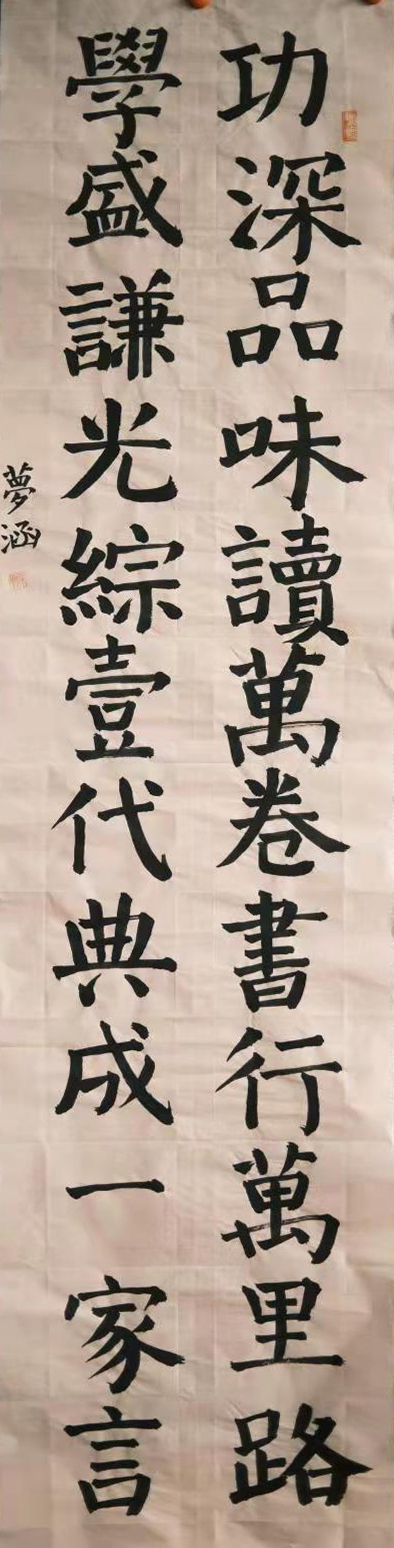 功深品味讀萬卷書行萬里路
學盛謙光綜壹代典成一家言
夢涵